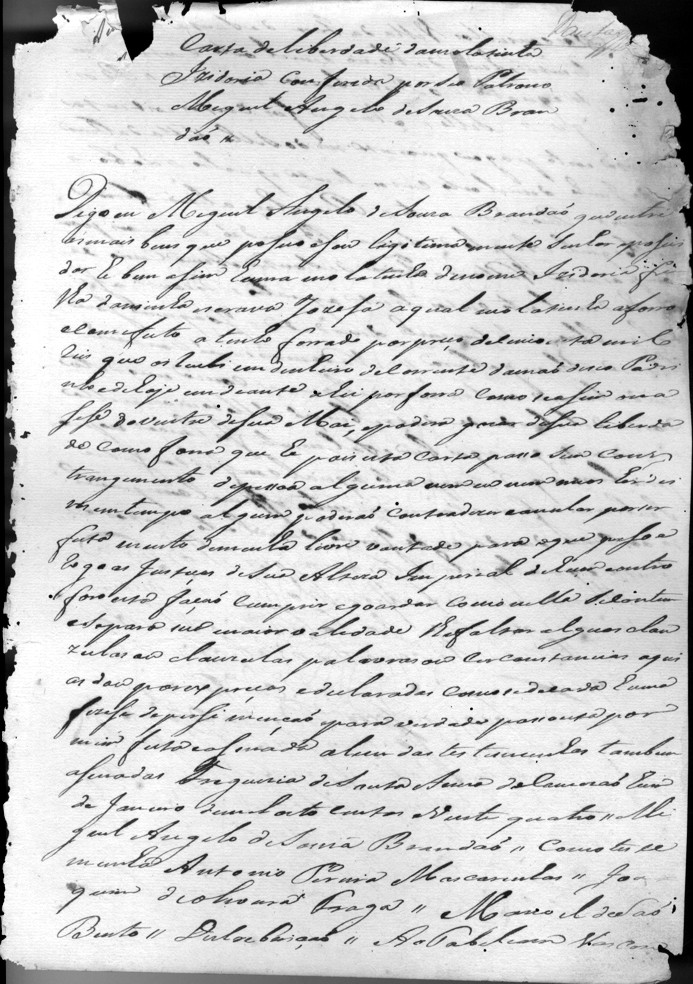 Carta de liberdade da mulatinha
Izidoria conferida por seu Patrono
Miguel Angelo de Souza Bran
daó "
Digo eu Miguel Angelo de Souza Brandaó que entre
os mais bens que pessuo e sou legitima mente Senhor epossui
dor he bem asim huma mulatinha de nome Izidoria fi
lha da minha escrava Jozefa a qual mulatinha aforro
e tenho forrado por preço de mil
reis que os recebi em dinheiro de Contado da maó de seo Padri
nho e de oje em deante e lei por forra como se asim na
sese do ventre de sua Mai, e podera gozar de sua liberda
de como forra que he pois esta Carta passo sem Cons
trangimento de pessoa alguma nem eu nem meos Erdei
ros em tempo algum poderaó Contradizer e anular por ser
feita muito de minha livre vontade para o que pesso e
rogo as Justiças de Sua Alteza Imperial de hum e outro
foro esta façaó Cumprir e goardar Como nella se Contem
e se para sua maior validade lhe faltar alguas clau
zulas ou clauzulas palavras ou Circonstancias aqui
as dou por expreças e declaradas como se de cada huma
fizese de per si mencaó e para verdade passo esta por
mim feita e asinada alem das testemunhas tambem
asinadas Freguezia de Santa Anna do hum
de Janeiro de mil oito centos e Vinte quatro " Mi
guel Angelo de Souza Brandaó " Como teste
munha Antonio Pereira Mascarenhas " Joa
quim de Fraga " Manoel de Saó
Bento " Destrebuiçaó " Ao Tabeliam Vascon